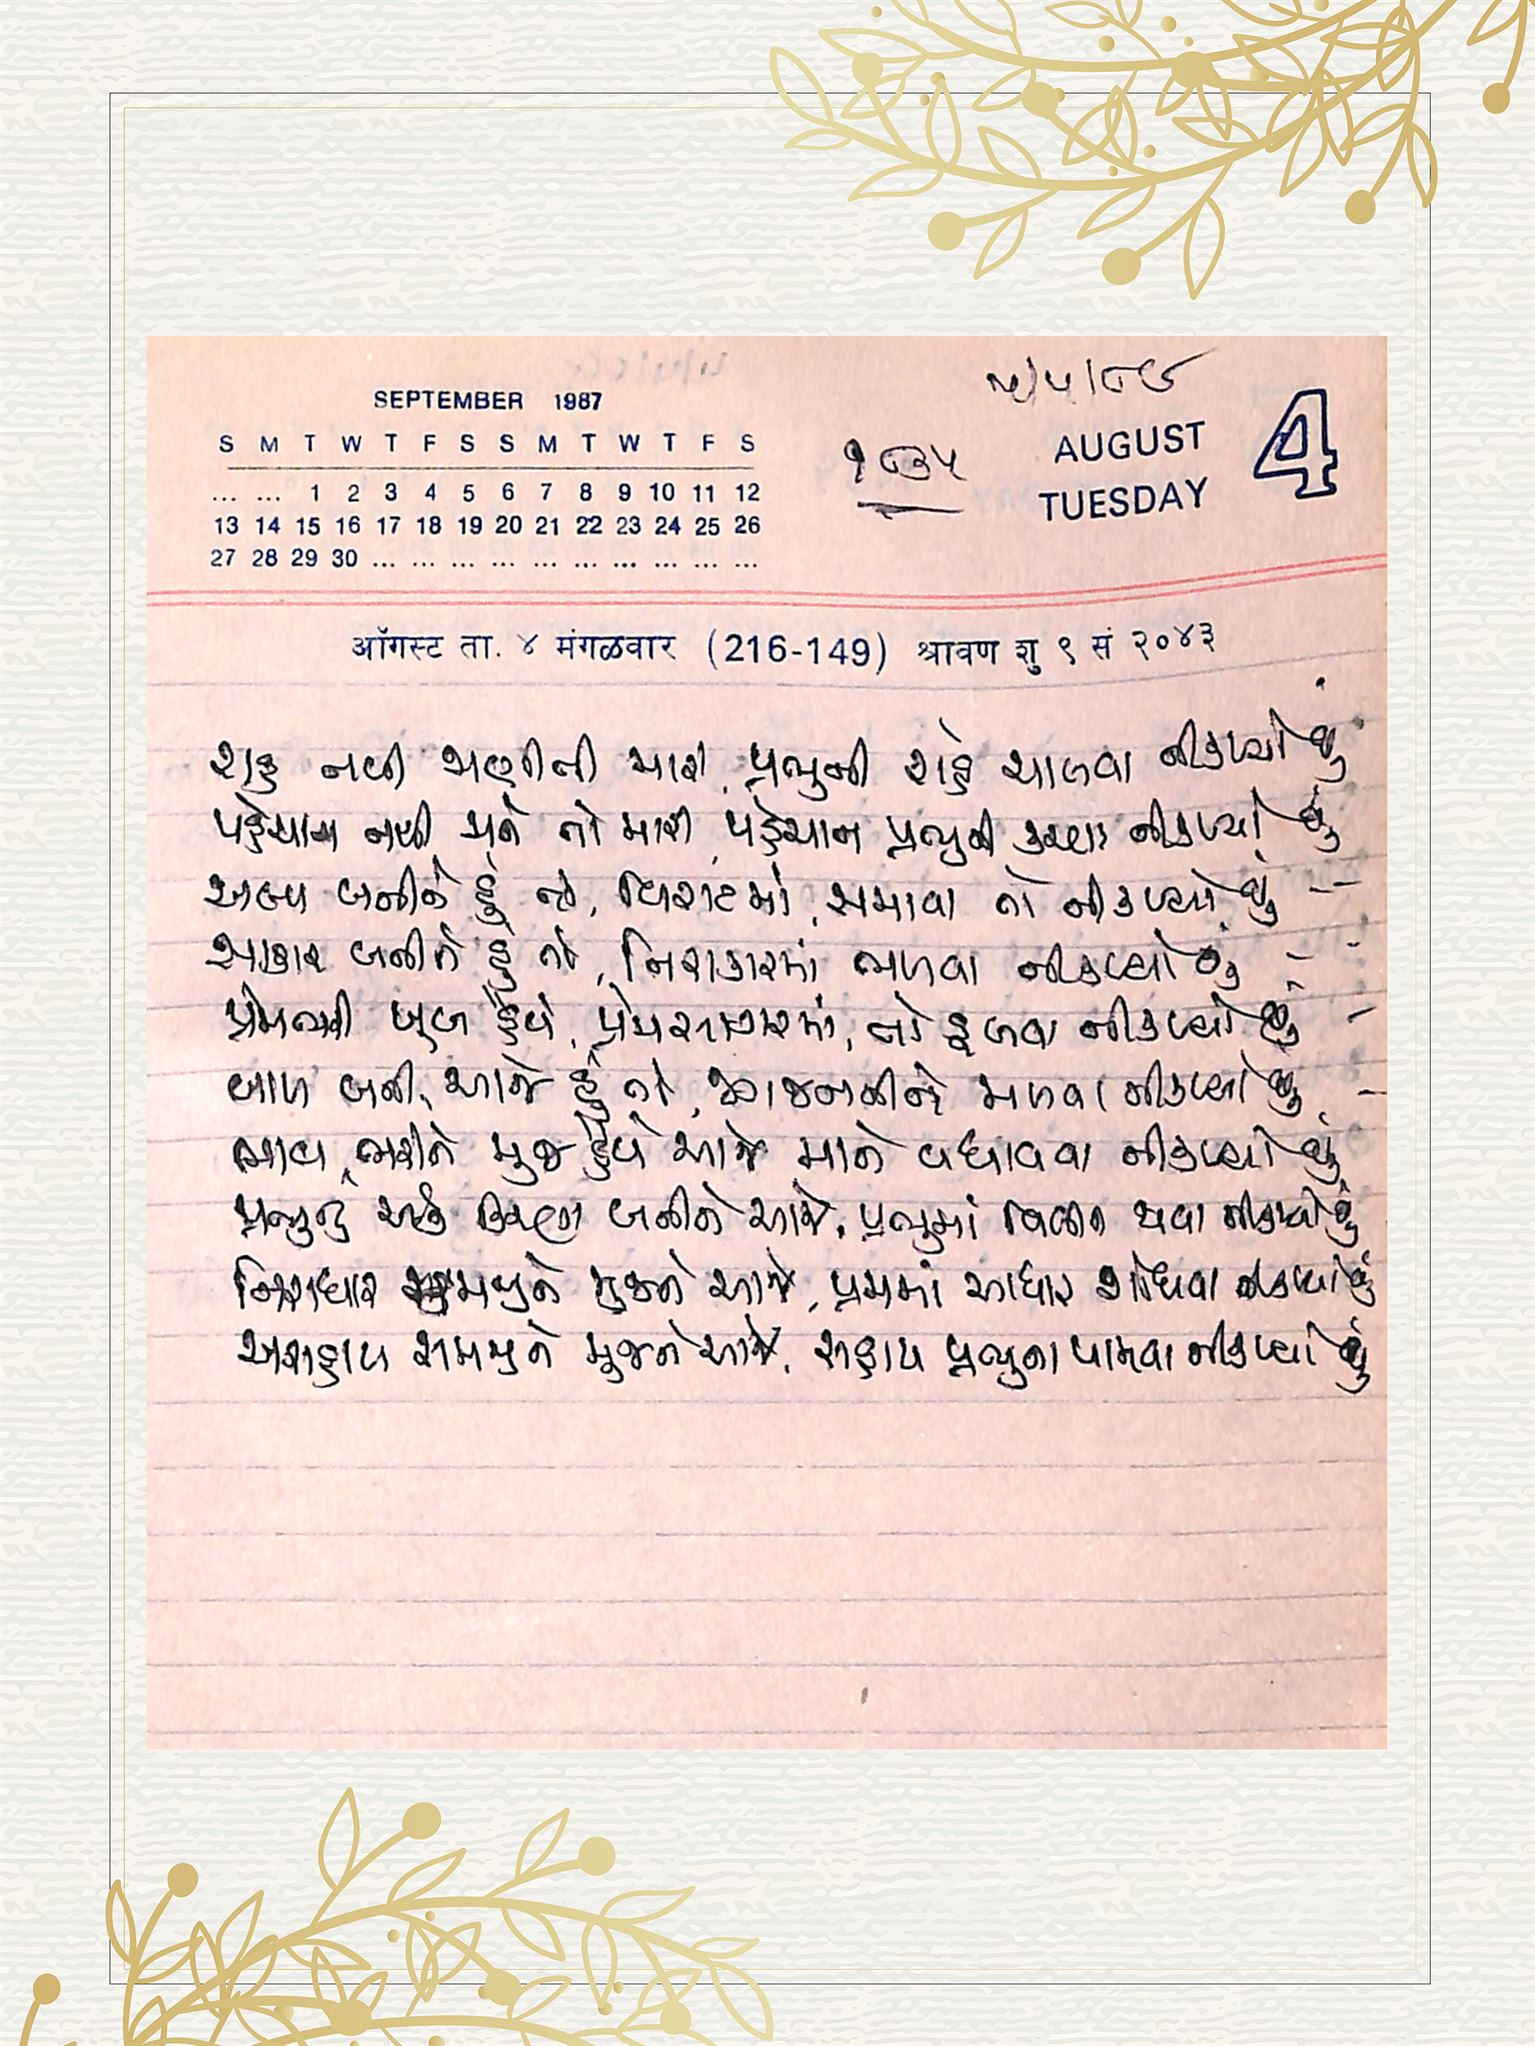 SEPTEMBER 1987
S M T W T F S S M T W T F S
... ... 1 2 3 4 5 6 7 8 9 10 11 12
13 14 15 16 17 18 19 20 21 22 23 24 25 26
27 28 29 30 ... ... ... ... ... ... ... ... ... ...
૧૮૩૫
AUGUST
TUESDAY
4
ऑगस्ट ता. ४ मंगळवार (216-149) श्रावण शु ९ सं २०४३
રાહ નથી જાણીતી મારી, પ્રભુની રાહે ચાલવા નીકળ્યો છું
પહેચાન નથી મને તો મારી, પહેચાન પ્રભુની કરવા નીકળ્યો છું
અલ્પ બનીને હું તો, વિરાટમાં, સમાવા તો નીકળ્યો છું --
આકાર બનીને હું તો, નિરાકારમાં ભળવા નીકળ્યો છું --
પ્રેમભરી હૈયે, પ્રેમસાગરમાં, તો ડૂબવા નીકળ્યો છું -
બાળ બની, આજે હું તો, જગજનનીને મળવા નીકળ્યો છું --
ભાવ ભરીને મુજ હૈયે આજે માને વધાવવા નીકળ્યો છું
પ્રભુનું એક કિરણ બનીને આજે, પ્રભુમાં વિલીન થવા નીકળ્યો છું
નિરાધાર સમજીને મુજને આજે, પ્રભુમાં આધાર શોધવા નીકળ્યો છું
અસહાય સમજીને મુજને આજે, સહાય પ્રભુના પામવા નીકળ્યો છું